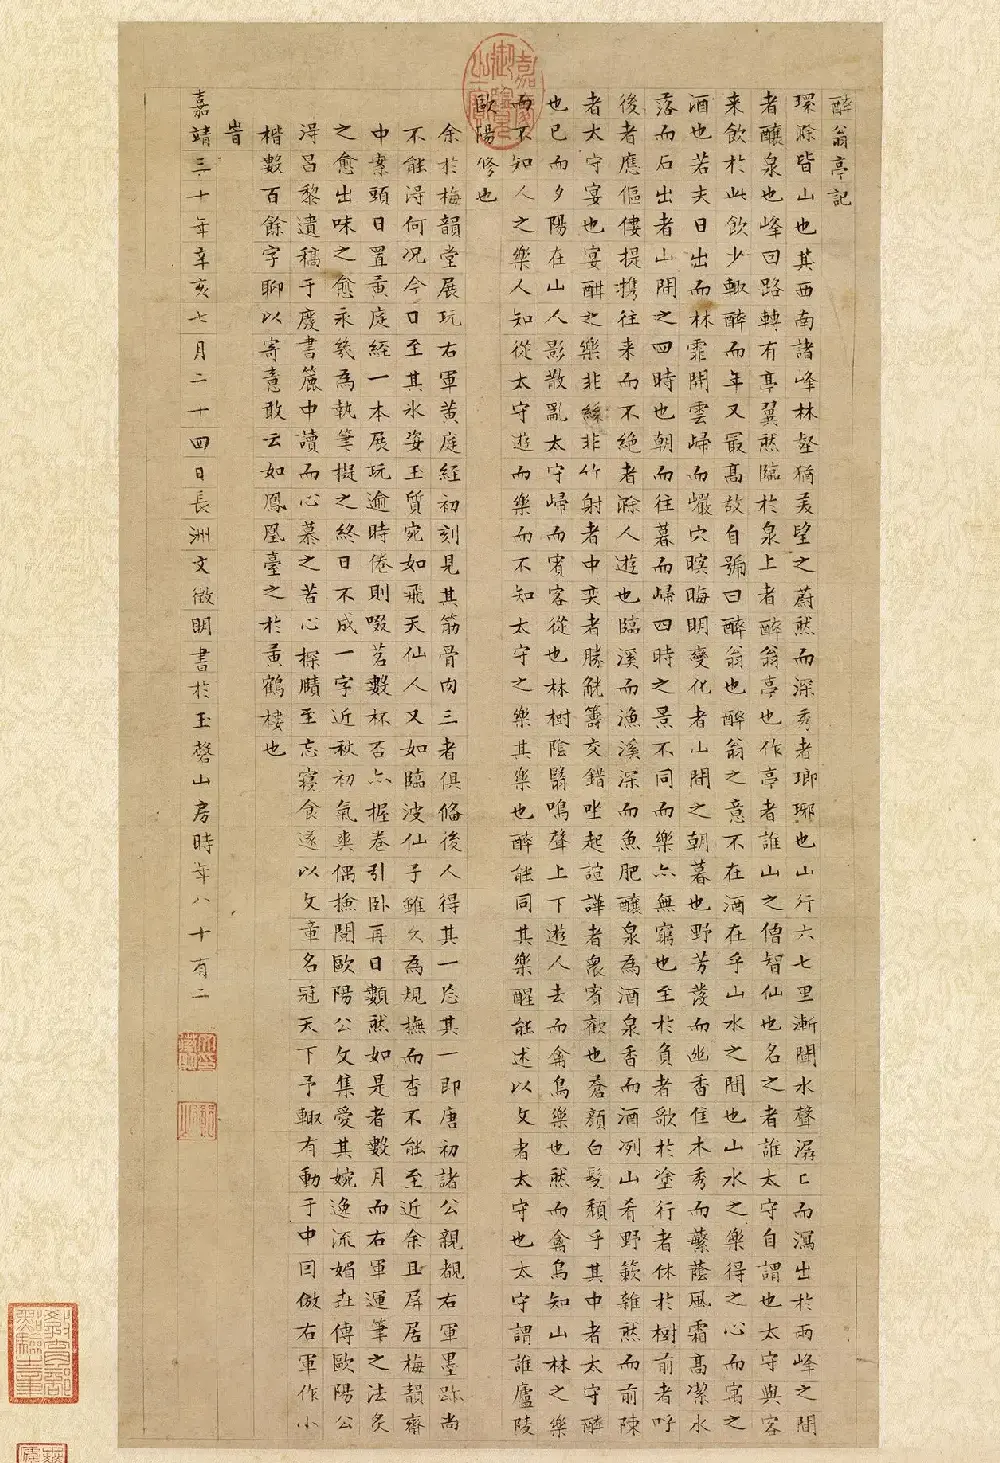 醉翁亭記
環滁皆山也其西南諸峰林壑猶美望之蔚然而深秀者瑯琊也山行六七里漸聞水聲潺〻而瀉出於兩峰之間
者釀泉也峰回路轉有亭翼然臨於泉上者醉翁亭也作亭者誰山之僧智仙也名之者誰太守自謂也太守與客
来飲於此飲少輒醉而年又最高故自號曰醉翁也醉翁之意不在酒在乎山水之間也山水之樂得之心而寓之
酒也若夫日出而林霏開雲歸而巖穴暝晦明變化者山間之朝暮也野芳發而幽香佳木秀而蘩蔭風霜高潔水
落而石出者山間之四時也朝而往暮而歸四時之景不同而樂亦無窮也至於負者歌於塗行者休於樹前者呼
後者應傴僂提攜往来而不絕者滁人遊也臨溪而漁溪深而魚肥釀泉為酒泉香而酒冽山肴野蔌雜然而前陳
者太守宴也宴酣之樂非絲非竹射者中奕者勝觥籌交錯坐起諠譁者衆賓歡也蒼顏白髮頹乎其中者太守醉
也已而夕陽在山人影散亂太守歸而賓客從也林樹陰翳鳴聲上下遊人去而禽鳥樂也然而禽鳥知山林之樂
而不知人之樂人知從太守遊而樂而不知太守之樂其樂也醉能同其樂醒能述以文者太守也太守謂誰廬陵
歐陽修也
余於梅韻堂展玩右軍黃庭經初刻見其筋骨肉三者俱備後人得其一忘其一即唐初諸公親覩右軍墨跡尚
不能得何况今日至其氷姿玉質宛如飛天仙人又如臨波仙子雖久為規撫而杳不能至近余且屏居梅韻齋
中案頭日置黃庭經一本展玩逾時倦則啜茗數杯否亦握卷引卧再日然如是者數月而右軍運筆之法炙
之愈出味之愈永幾為執筆擬之終日不成一字近秋初氣爽偶撿閱歐陽公文集愛其婉逸流媚世傳歐陽公
得昌黎遺稿于廢書簏中讀而心慕之苦心探賾至忘寢食遂以文章名冠天下予輒有動于中因倣右軍作小
楷數百餘字聊以寄意敢云如鳳凰臺之於黃鶴樓也
旹
嘉靖三十年辛亥七月二十四日長洲文徵明書於玉磬山房時年八十有二
嘉慶御覽之寶